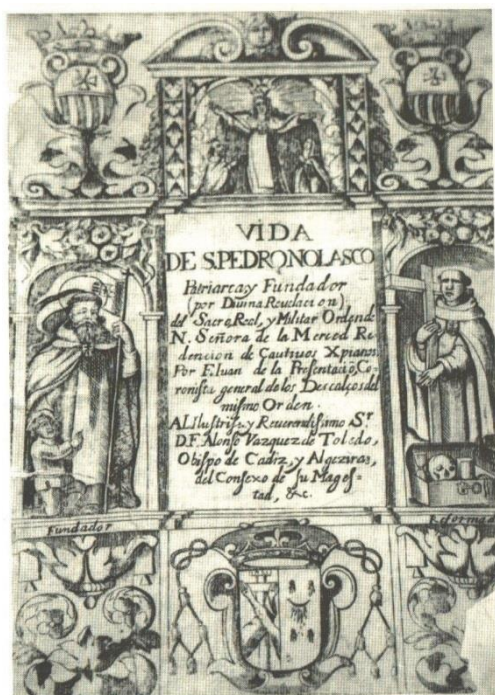 VIDA
DE S. PEDRO NOLASCO
Patriarca y Fundador
(por Diuina Reuelacion)
del Sacro, Real, y Militar Orden de
N. Señora de la Merced Re
dencion de Cautiuos Xpianos.
Por F. Iuan de la Presentaciõ, Co-
ronista general de los Descalços del
mismo Orden.
Al Ilustriss. y Reuerendissimo Sr
D. F. Alonso Vazquez de Toledo,
Obispo de Cadiz, y Algeziras,
del Consexo de su Mages=
tad, &c.
Fundador
Reforma